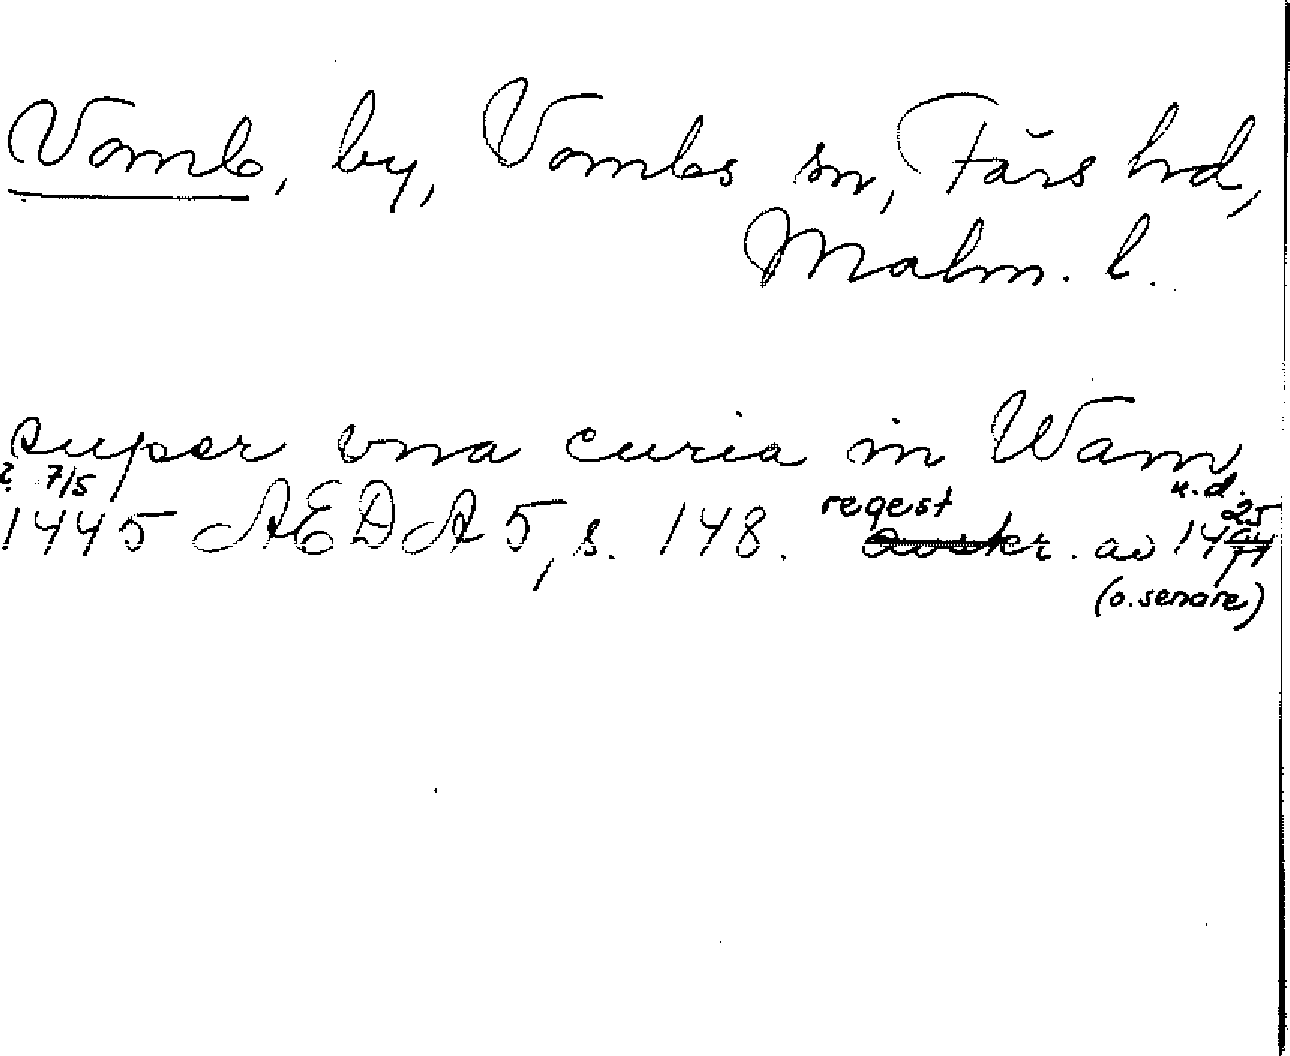 Vomb, by, Vombs sn, Färs hd,
Malm. l.
super vna curia in Wam
7/5 u.d.
1445 AEDA 5, s. 148. regest avskr. av 1425
(o. senare)